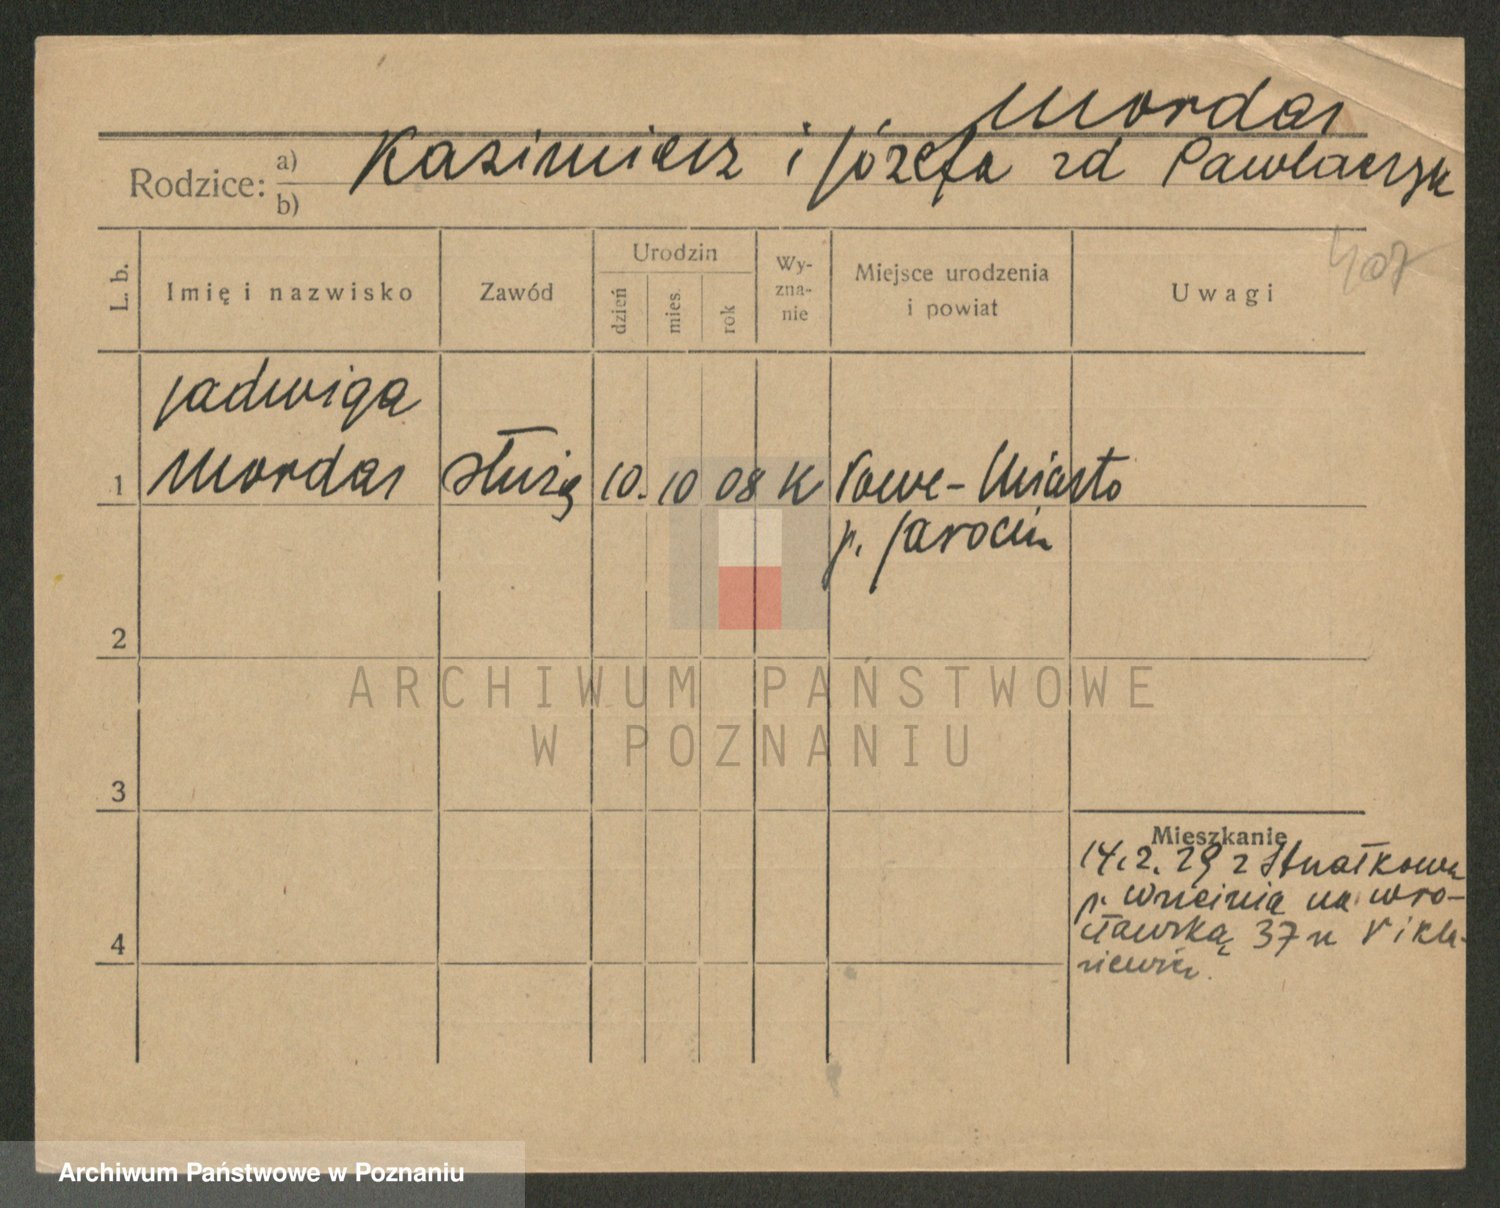 Mordas
Rodzice: a) Kazimierz i Józefa zd Pawlaczyk
b)
407
L. b.
Imię i nazwisko
Zawód
Urodzin
dzień
mies.
rok
Wy-
zna-
nie
Miejsce urodzenia
i powiat
Uwagi
Jadwiga
1 Mordas służą 10. 10 08 K Nowe-Miasto
p. Jarocin
2
ARCHIWUM PAŃSTWOWE
W POZNANIU
3
Mieszkanie
14.2.29 z
p. na Wro-
cławską 37 u
4
Archiwum Państwowe w Poznaniu